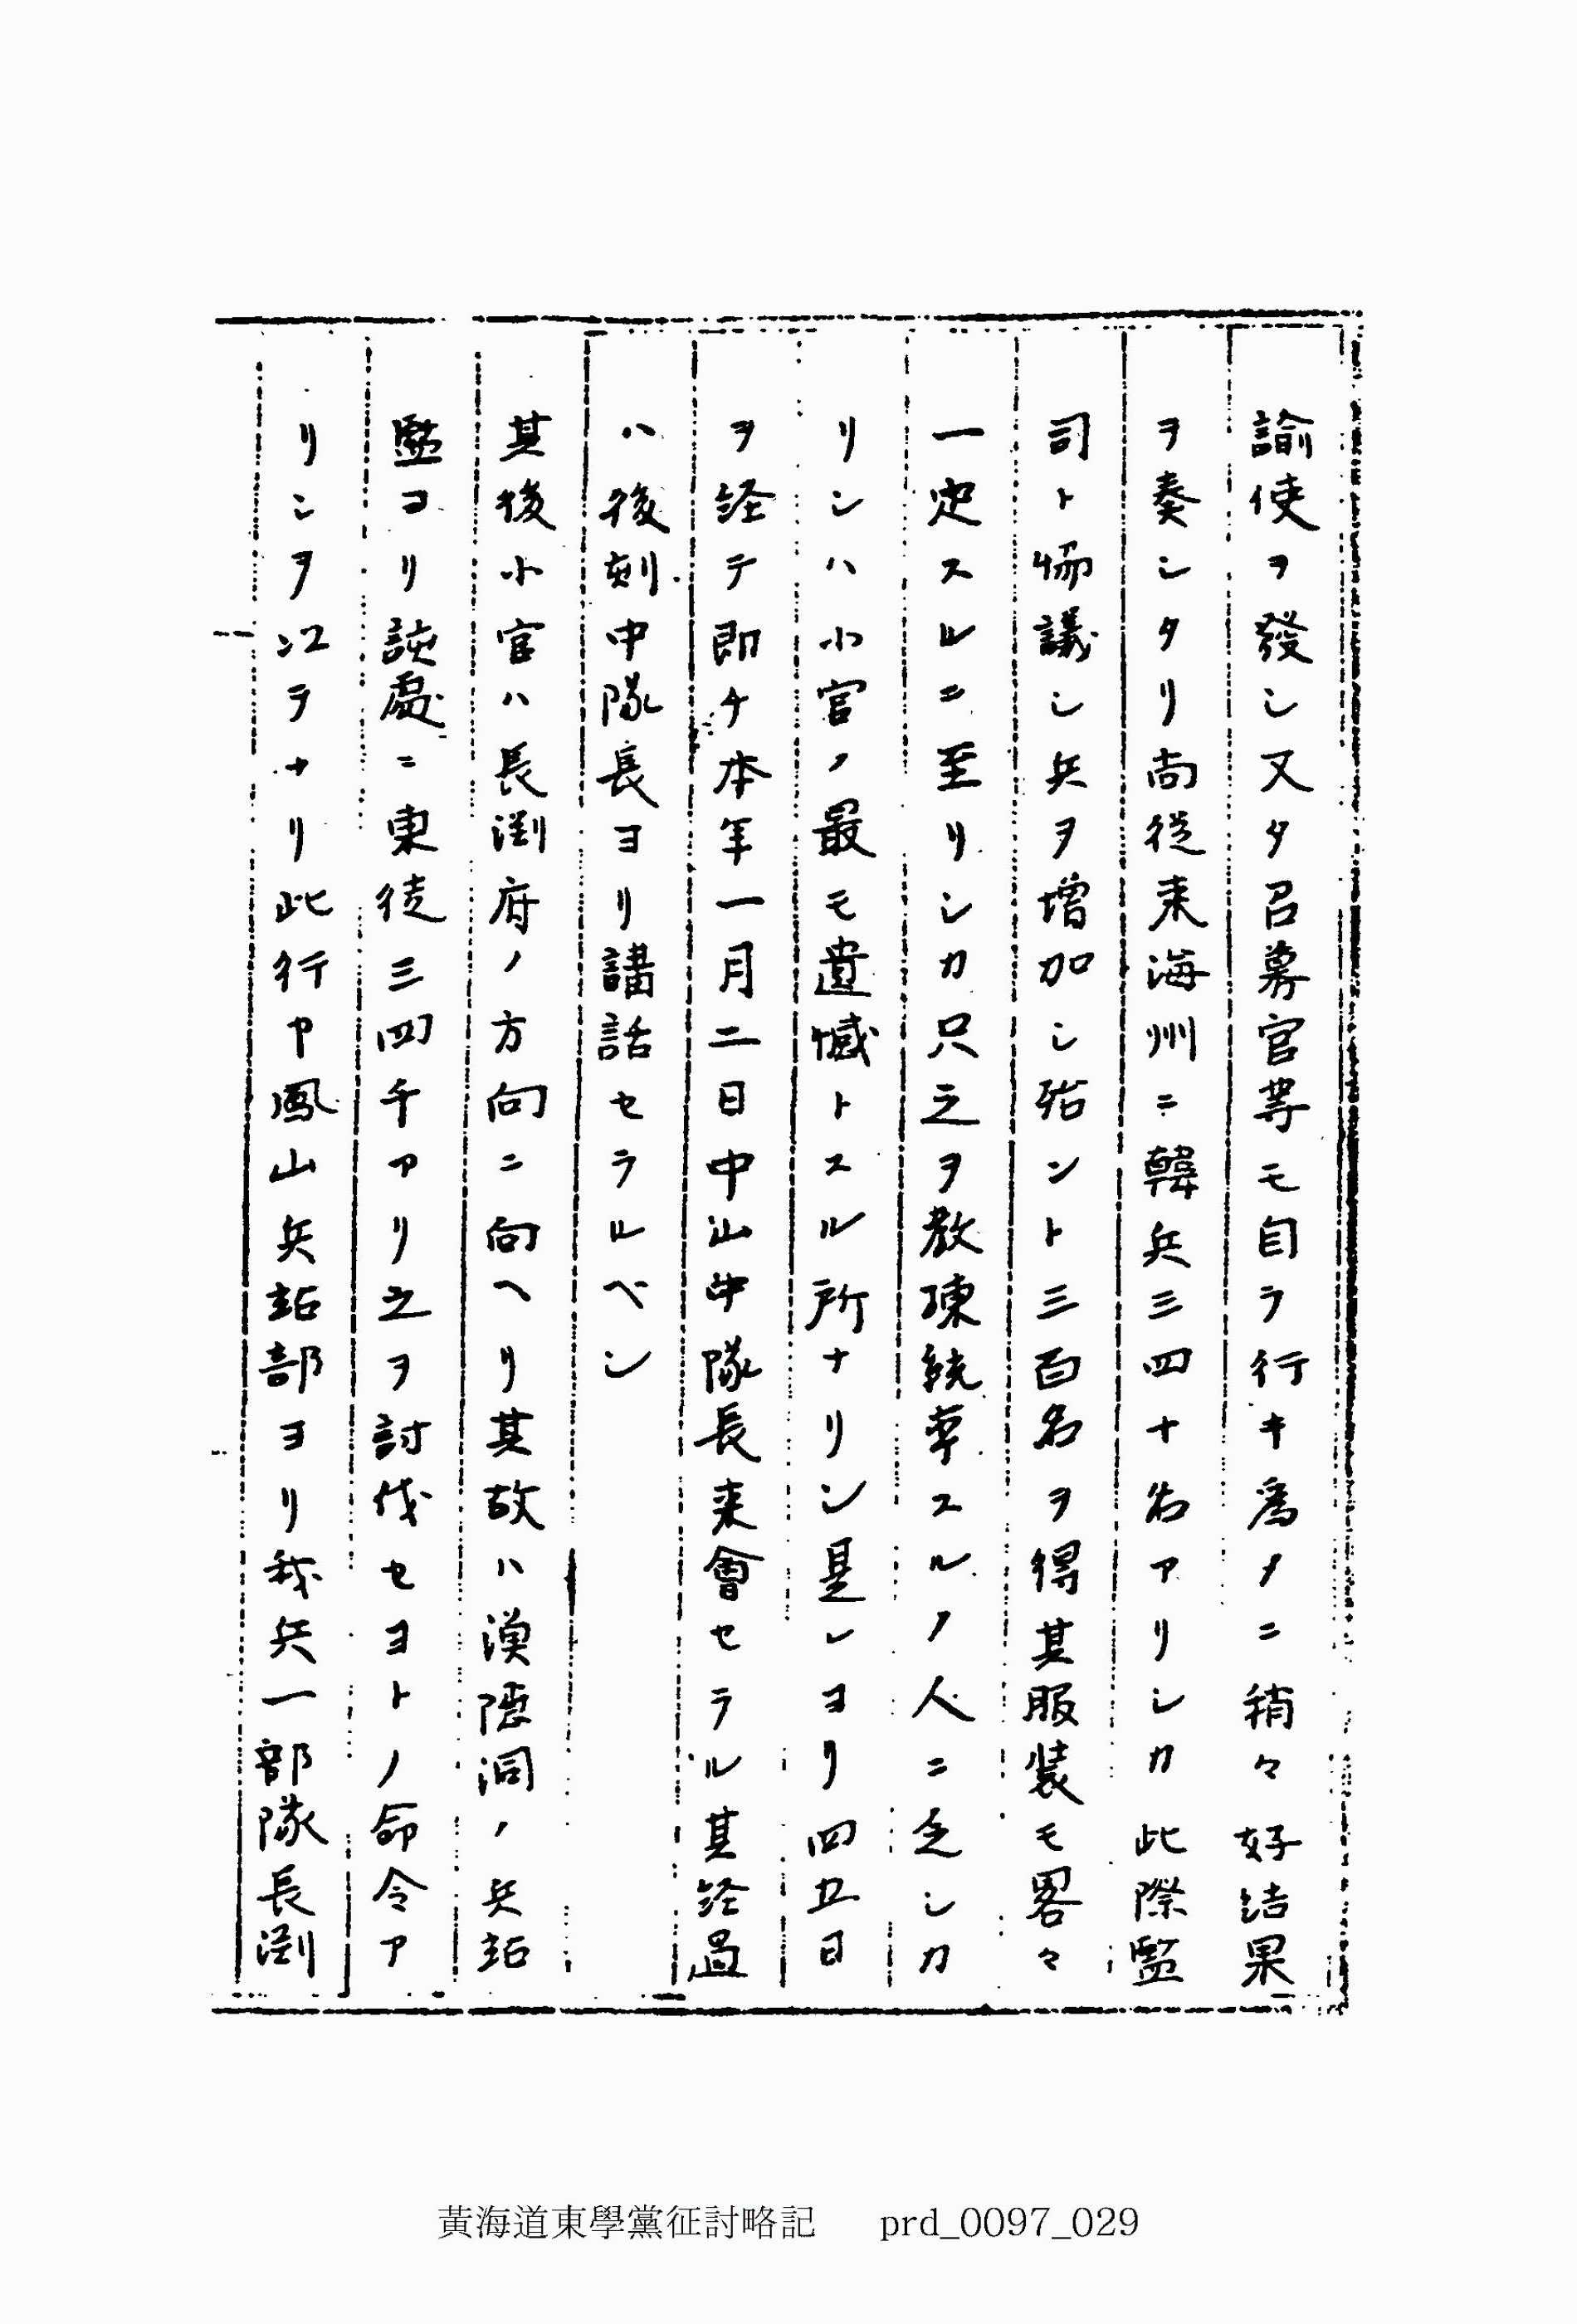 諭使ヲ發シ又タ召募官等モ自ラ行キ為メニ稍々好結果
ヲ奏シタリ尚従来海州ニ韓兵三四十名アリシカ此際監
司ト協議シ兵ヲ増加シ殆ント三百名ヲ得其服装モ畧々
一定スルニ至リシカ只之ヲ教練統率スルノ人ニ乏シカ
リシハ小官ノ最モ遺憾トスル所ナリシ是レヨリ四五日
ヲ経テ即チ本年一月二日中山中隊長来會セラル其経過
ハ後刻中隊長ヨリ講話セラルベシ
其後小官ハ長渕府ノ方向ニ向ヘリ其故ハ漁隠洞ノ兵站
監ヨリ該處ニ東徒三四千アリ之ヲ討伐セヨトノ命令ア
リシヲ以テナリ此行ヤ鳳山兵站部ヨリ我兵一部隊長渕
黃海道東學黨征討略記 prd_0097_029